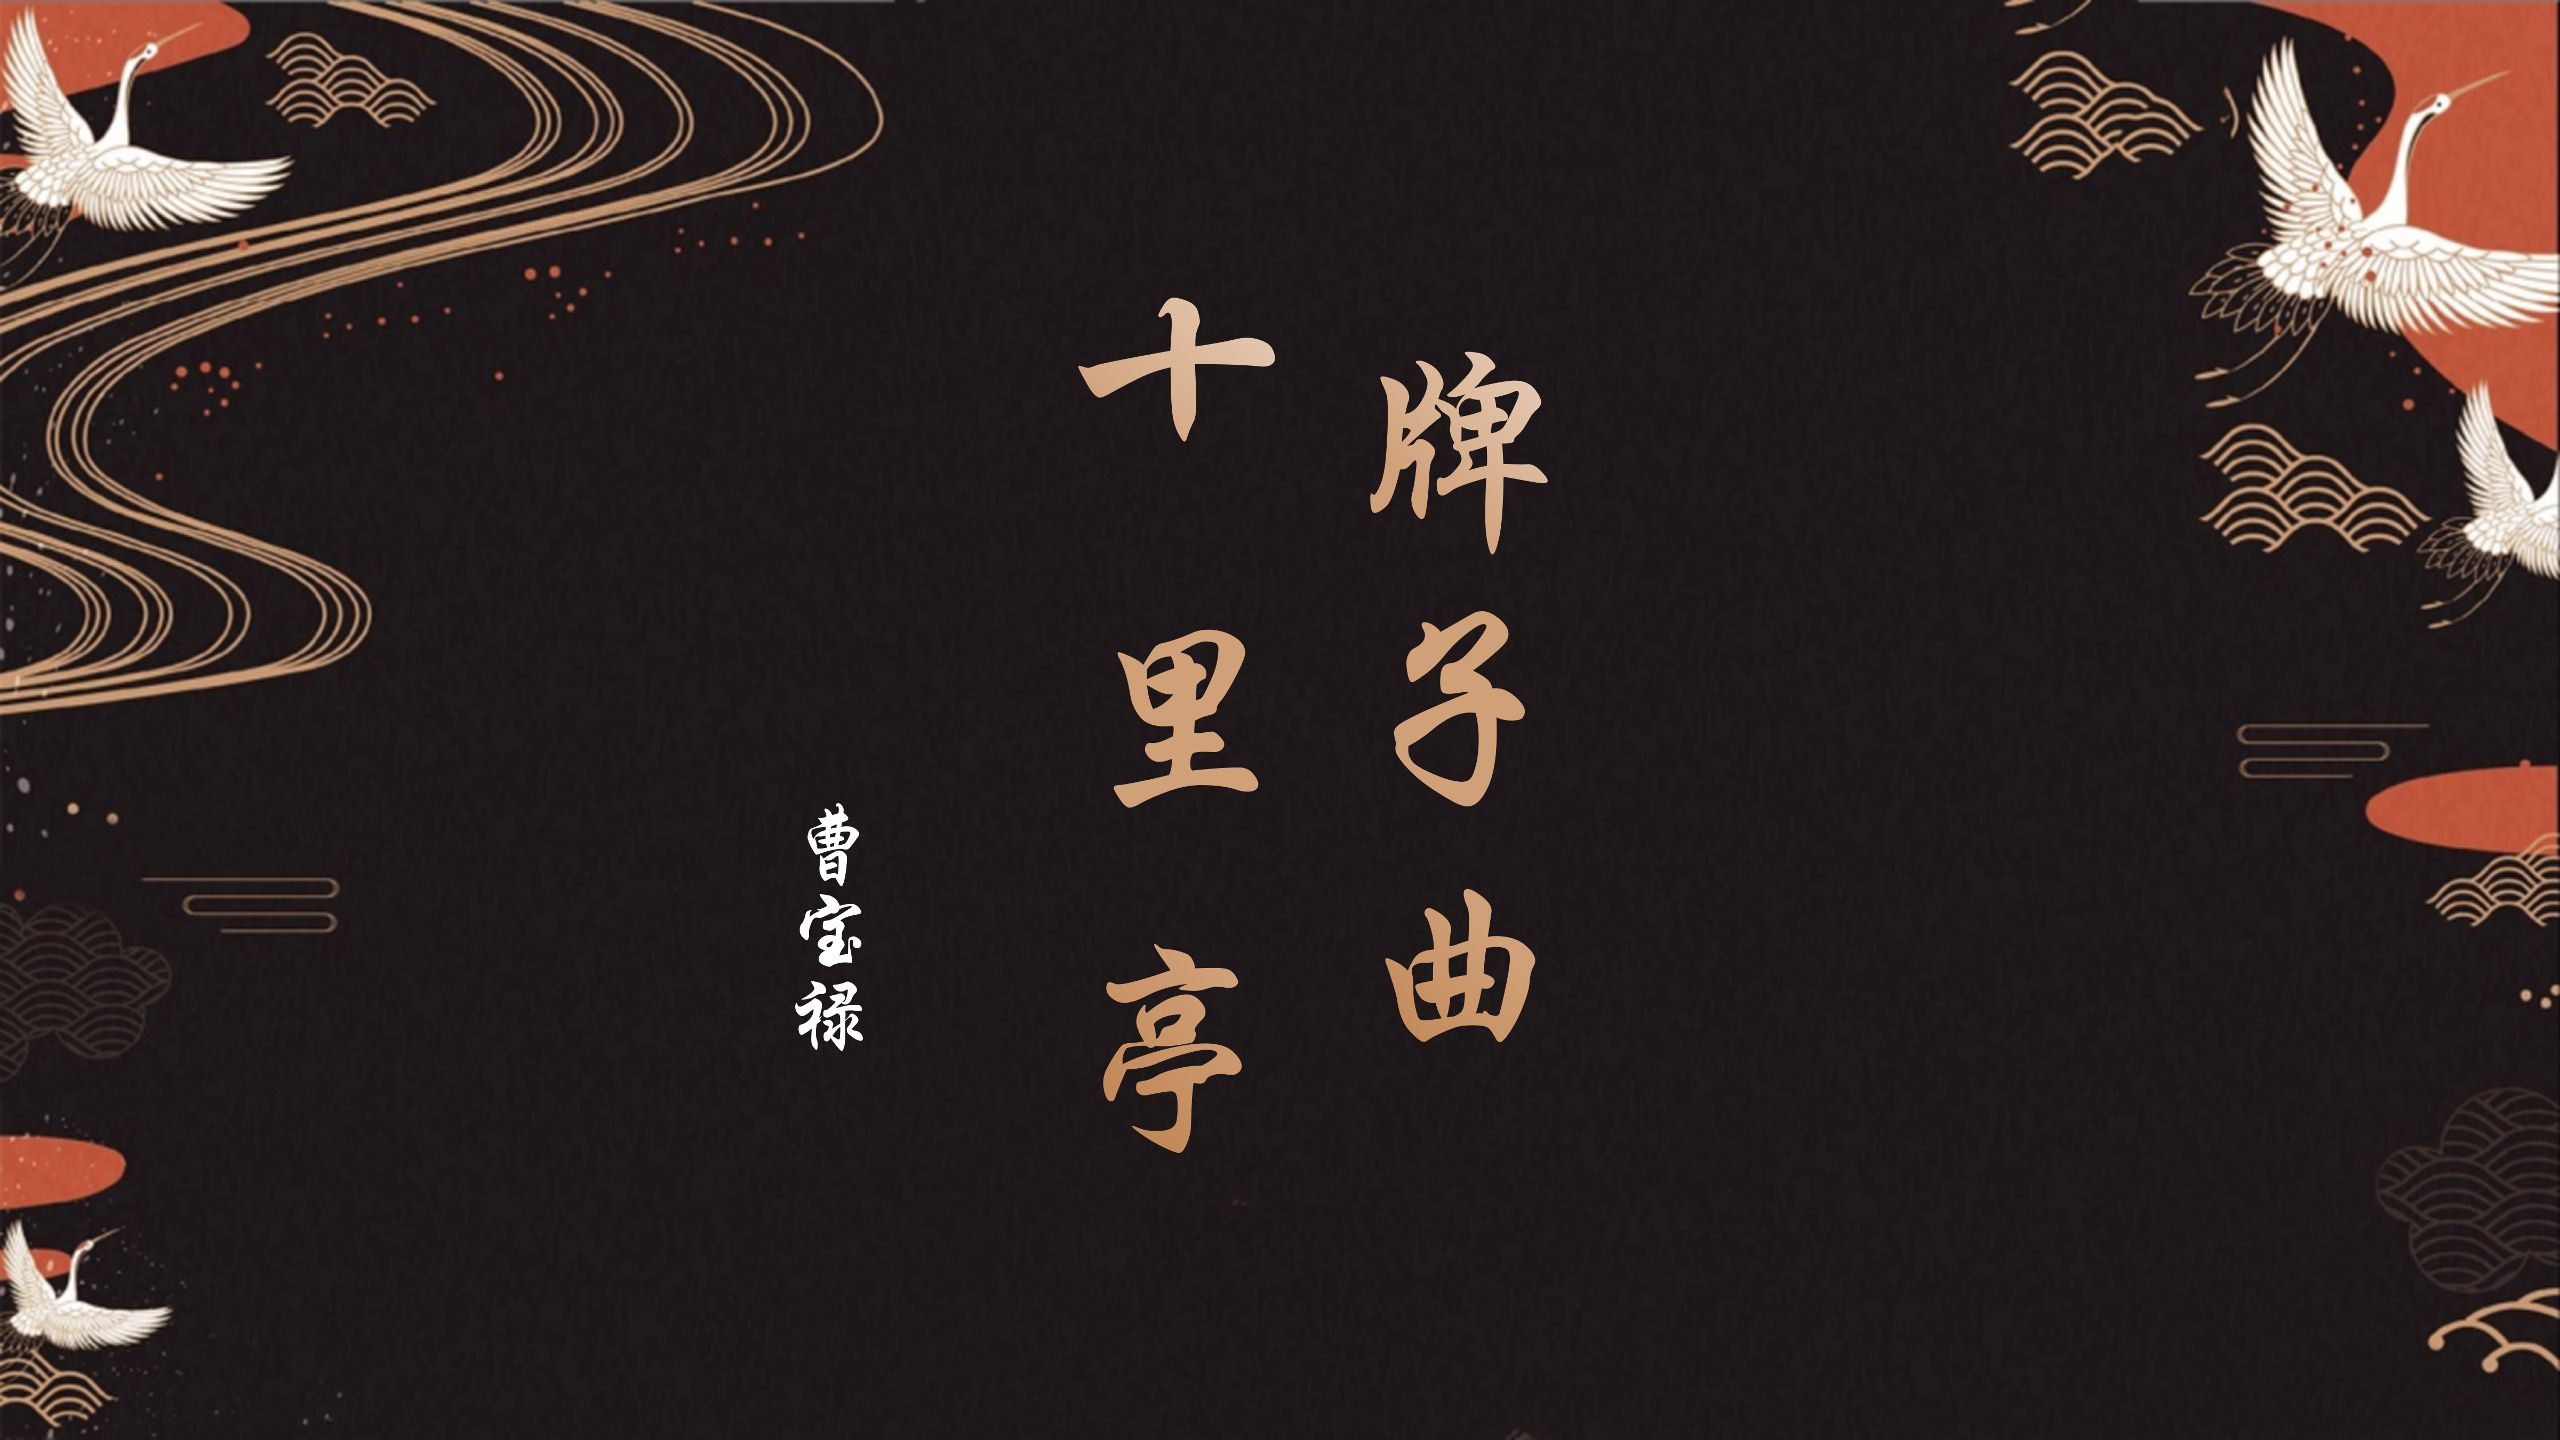 牌子曲
十里亭
曹宝禄